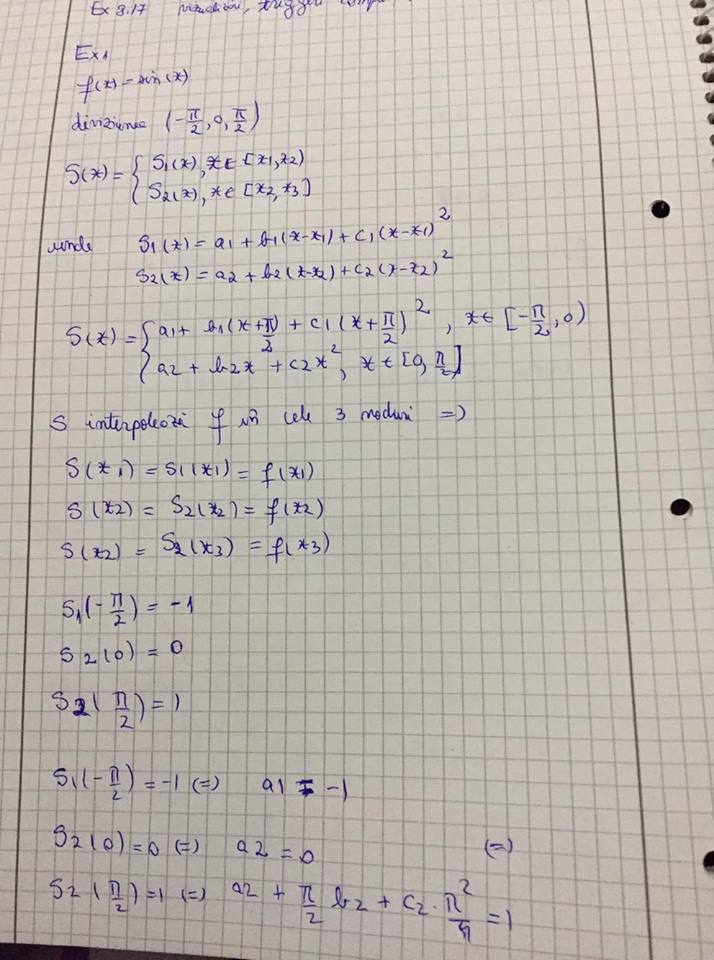 Ex 3.17 vizualizări, trigger
Ex1
f(x) = sin(x)
diviziunea (-π/2, 0, π/2)
S(x) = { S1(x), x ∈ [x1, x2)
S2(x), x ∈ [x2, x3]
unde S1(x) = a1 + b1(x-x1) + c1(x-x1)²
S2(x) = a2 + b2(x-x2) + c2(x-x2)²
S(x) = { a1 + b1(x+π/2) + c1(x+π/2)², x ∈ [-π/2, 0)
a2 + b2x + c2x², x ∈ [0, π/2]
S interpolează f în cele 3 noduri =)
S(x1) = S1(x1) = f(x1)
S(x2) = S2(x2) = f(x2)
S(x2) = S2(x3) = f(x3)
S1(-π/2) = -1
S2(0) = 0
S2(π/2) = 1
S1(-π/2) = -1 (=) a1 = -1
S2(0) = 0 (=) a2 = 0 (=)
S2(π/2) = 1 (=) a2 + π/2 b2 + c2 · π²/4 = 1